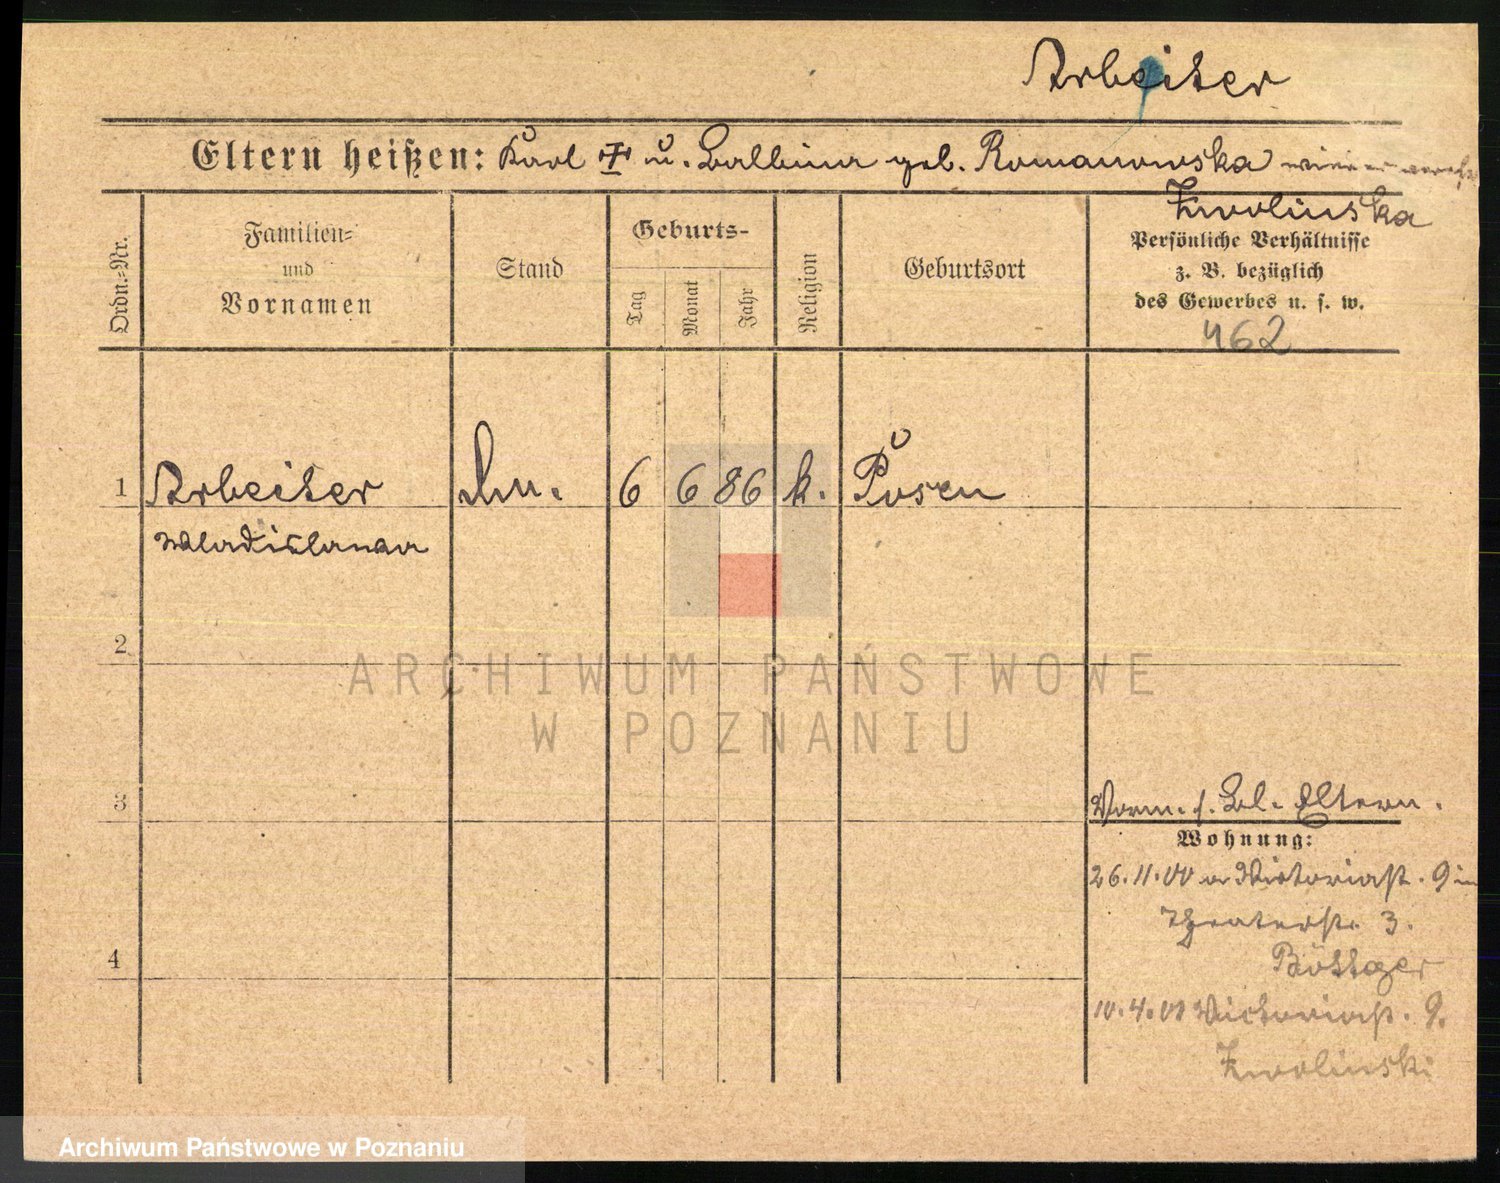 Arbeiter
Eltern heißen: Karl † u. Balbina geb. Romanowska
Zwolinska
Ordn.-Nr.
Familien-
und
Vornamen
Stand
Geburts-
Tag
Monat
Jahr
Religion
Geburtsort
Persönliche Verhältnisse
z. B. bezüglich
des Gewerbes u. s. w.
462
1 Arbeiter 6 6 86 k. Posen
Wladislawa
2
ARCHIWUM PAŃSTWOWE
W POZNANIU
3
Vorm. s. Bl. Eltern.
Wohnung:
26.11.00 a Victoriast. 9 in
Theaterstr. 3.
Böttger
4
10.4.01 Victoriast. 9.
Zwolinski
Archiwum Państwowe w Poznaniu